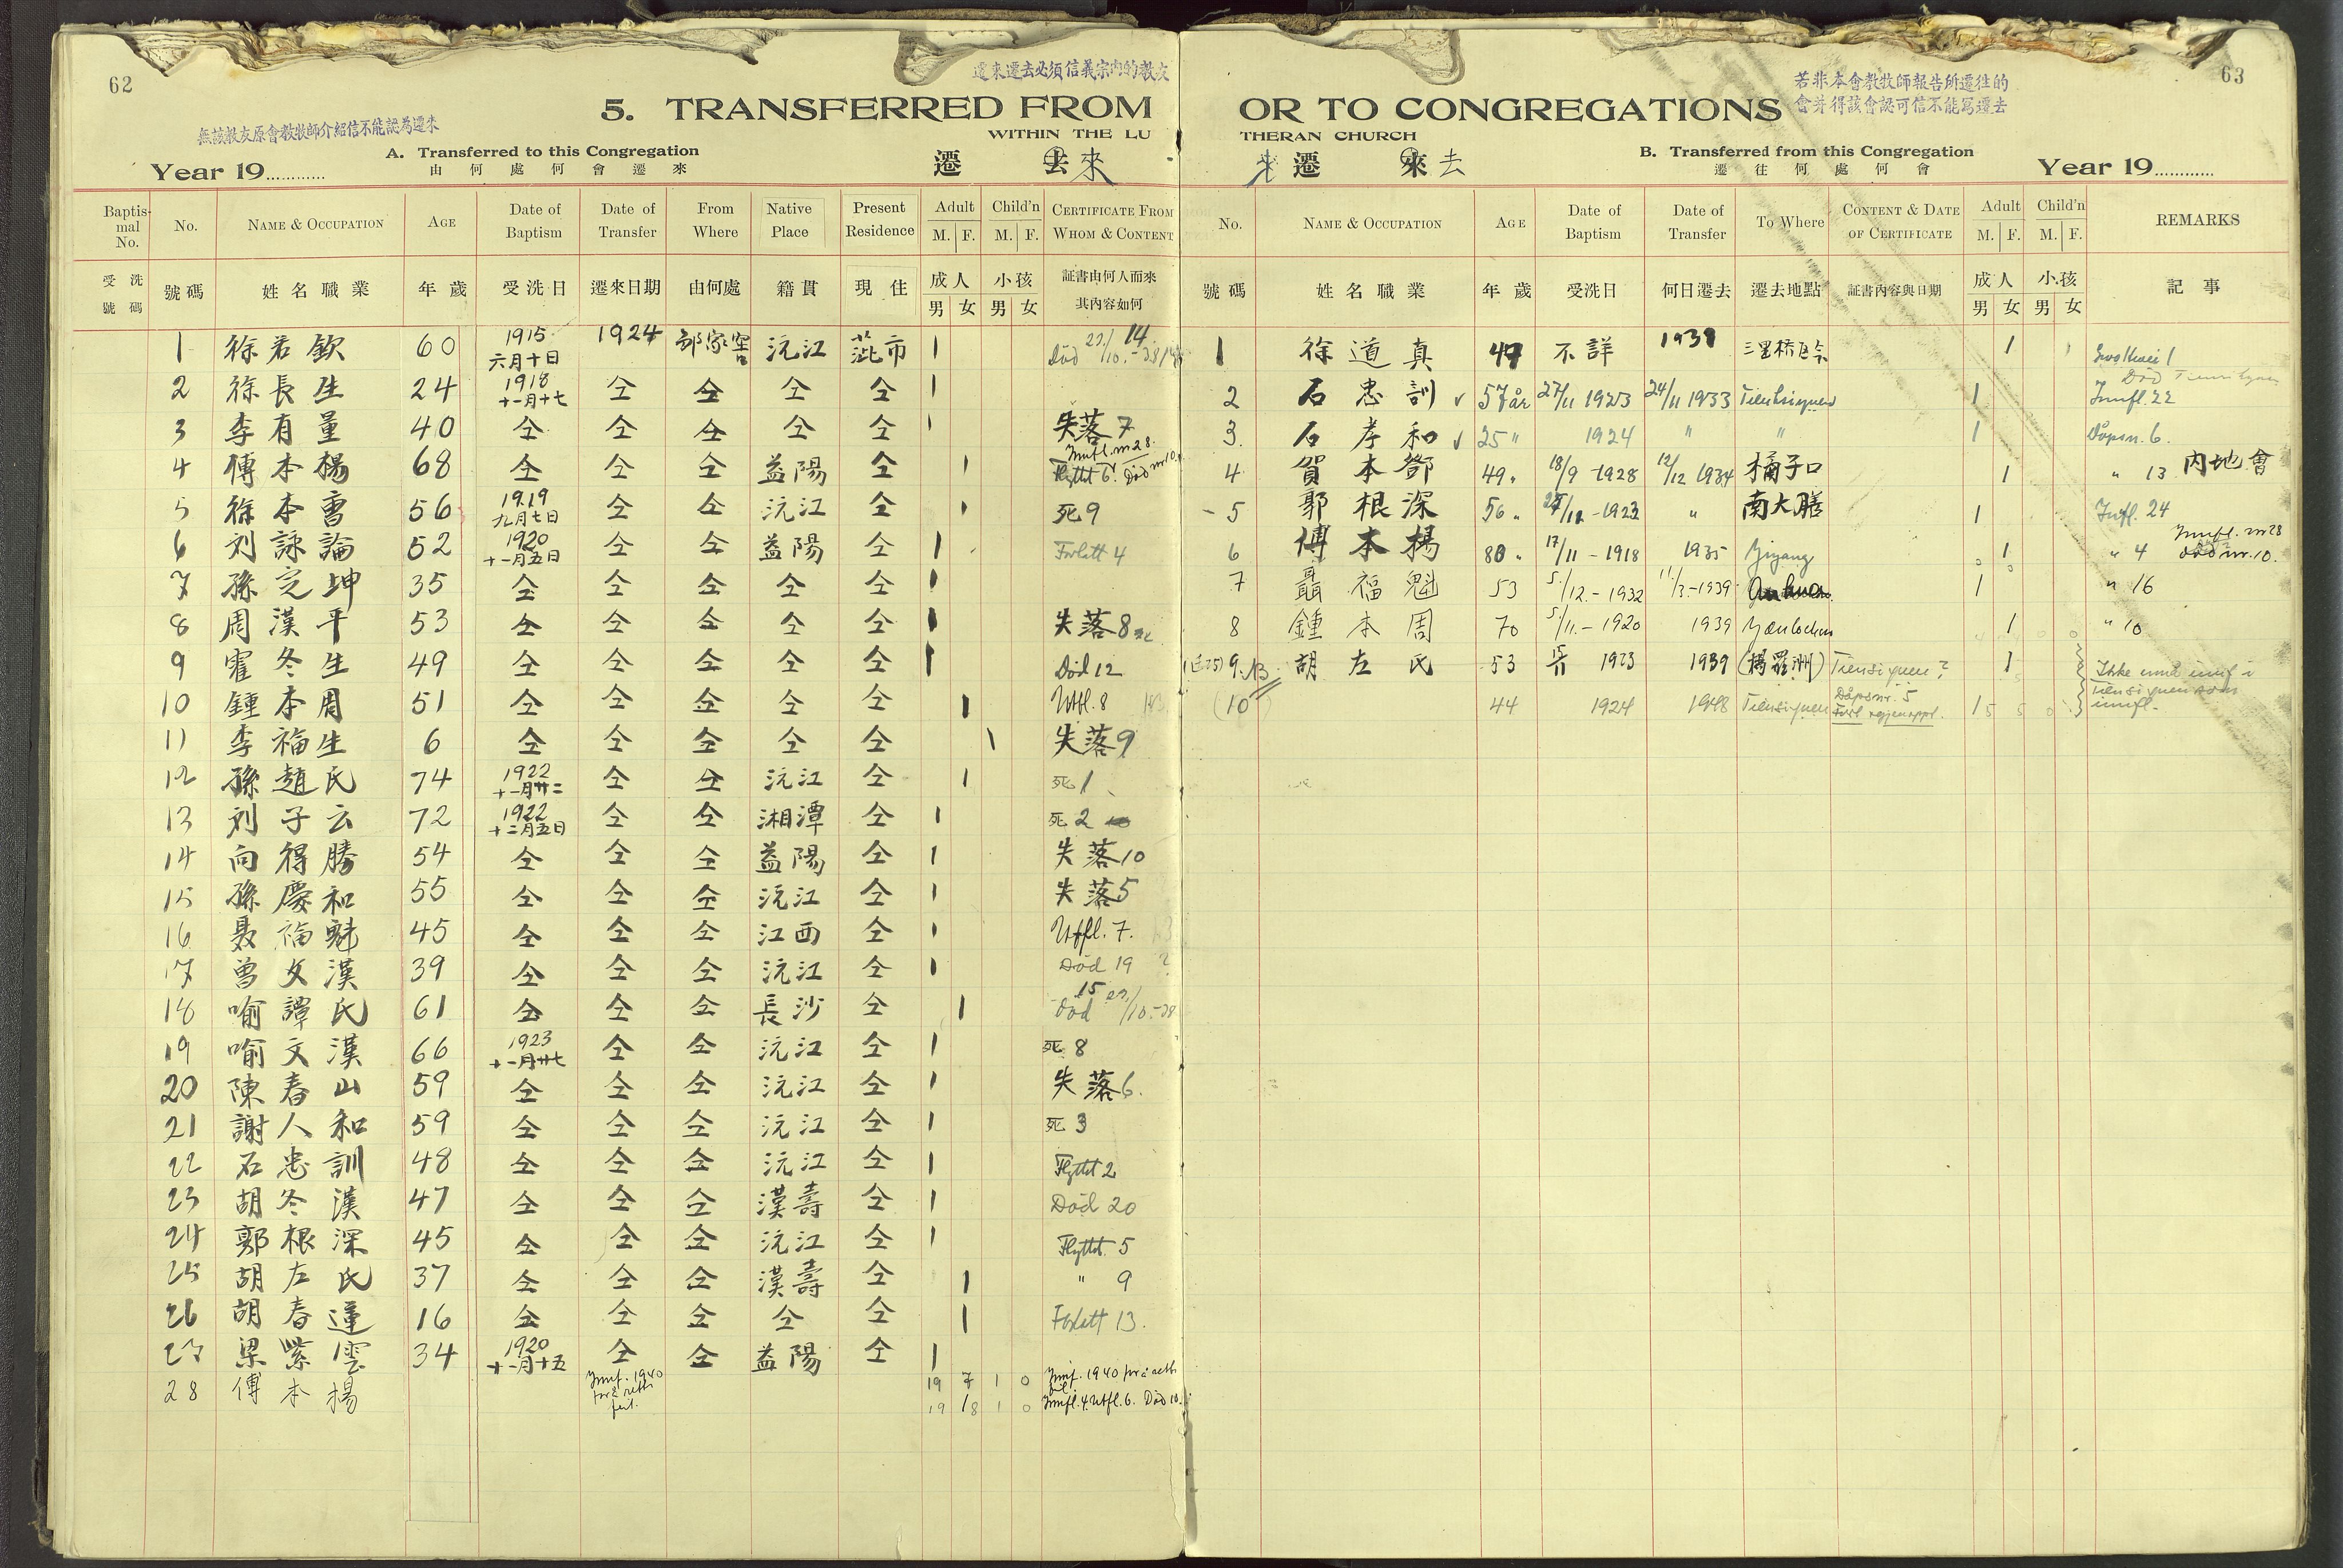 62
遷來遷去必須信義宗內的教友
無該教友原會教牧師介紹信不能認為遷來
5. TRANSFERRED FROM
WITHIN THE LU
A. Transferred to this Congregation
由何處何會遷來
Year 19............
遷 去 來
Baptismal No. No. NAME & OCCUPATION AGE Date of Baptism Date of Transfer From Where Native Place Present Residence Adult M. F. Child'n M. F. CERTIFICATE FROM WHOM & CONTENT
受洗號碼 號碼 姓名職業 年歲 受洗日 遷來日期 由何處 籍貫 現住 成人 男 女 小孩 男 女 証書由何人而來其內容如何
1 徐若欽 60 1915 六月十日 1924 沅江 茈市 1 14 Död
2 徐長生 24 1918 十一月十七 仝 仝 仝 仝 1
3 李有量 40 仝 仝 仝 仝 仝 1 失落7
4 傅本楊 68 仝 仝 仝 益陽 仝 1 Innfl. nr 28. Flyttet 6. Död nr 10.
5 徐本 56 1919 九月七日 仝 仝 沅江 仝 1 死9
6 刘詠論 52 1920 十一月五日 仝 仝 益陽 仝 1 Forlatt 4
7 孫定坤 35 仝 仝 仝 仝 仝 1
8 周漢平 53 仝 仝 仝 仝 仝 1 失落8
9 霍冬生 49 仝 仝 仝 仝 仝 1 Död 12
10 鍾本周 51 仝 仝 仝 仝 仝 1 Utfl. 8
11 李福生 6 仝 仝 仝 仝 仝 1 失落9
12 孫趙氏 74 1922 十一月廿二 仝 仝 沅江 仝 1 死1
13 刘子云 72 1922 十二月五日 仝 仝 湘潭 仝 1 死2
14 向得勝 54 仝 仝 仝 益陽 仝 1 失落10
15 孫慶和 55 仝 仝 仝 沅江 仝 1 失落5
16 聂福魁 45 仝 仝 仝 江西 仝 1 Utfl. 7.
17 曾文漢 39 仝 仝 仝 沅江 仝 1 Död 19
18 喻譚氏 61 仝 仝 仝 長沙 仝 1 15 Död
19 喻文漢 66 1923 十一月廿七 仝 仝 沅江 仝 1 死8
20 陳春山 59 仝 仝 仝 沅江 仝 1 失落6.
21 謝人和 59 仝 仝 仝 沅江 仝 1 死3
22 石忠訓 48 仝 仝 仝 沅江 仝 1 Flyttet 2
23 胡冬漢 47 仝 仝 仝 漢壽 仝 1 Död 20
24 郭根深 45 仝 仝 仝 沅江 仝 1 Flyttet. 5
25 胡左氏 37 仝 仝 仝 漢壽 仝 1 " 9
26 胡春蓮 16 仝 仝 仝 仝 仝 1 Forlatt 13.
27 梁紫雲 34 1920 十一月十五 仝 仝 益陽 仝 1
28 傅本楊 19 7 1 0
19 18 1 0 Innfl. 4. Utfl. 6. Död 10.
63
若非本會教牧師報告所遷往的
會并得該會認可信不能寫遷去
OR TO CONGREGATIONS
THERAN CHURCH
B. Transferred from this Congregation
遷往何處何會
Year 19............
來 遷 來 去
No. NAME & OCCUPATION AGE Date of Baptism Date of Transfer To Where CONTENT & DATE OF CERTIFICATE Adult M. F. Child'n M. F. REMARKS
號碼 姓名職業 年歲 受洗日 何日遷去 遷去地點 証書內容與日期 成人 男 女 小孩 男 女 記事
1 徐道真 不詳 1 Död
2 石忠訓 57 år 27/11 1923 24/11 1933 1 Innfl. 22
3. 石孝和 25 " 1924 " " 1 Dåpsn. 6.
4 賀本鄧 49 " 18/9 -1928 12/12 1934 橘子口 1 " 13 內地會
5 郭根深 56 " 1923 " 南大膳 1 Innfl. 24
6 傅本楊 80 " 17/11 - 1918 1935 Yiyang 1 " 4 Innfl. nr 28 död nr. 10.
7 聶福魁 53 5/12.- 1932 11/3.-1939 1 " 16
8 鍾本周 70 5/11.- 1920 1939 1 " 10
9 胡左氏 53 1923 1939 (楊羅洲) Tiensiguen? 1
(10) 44 1924 1948 Tiensiguen Dåpsnr. 5